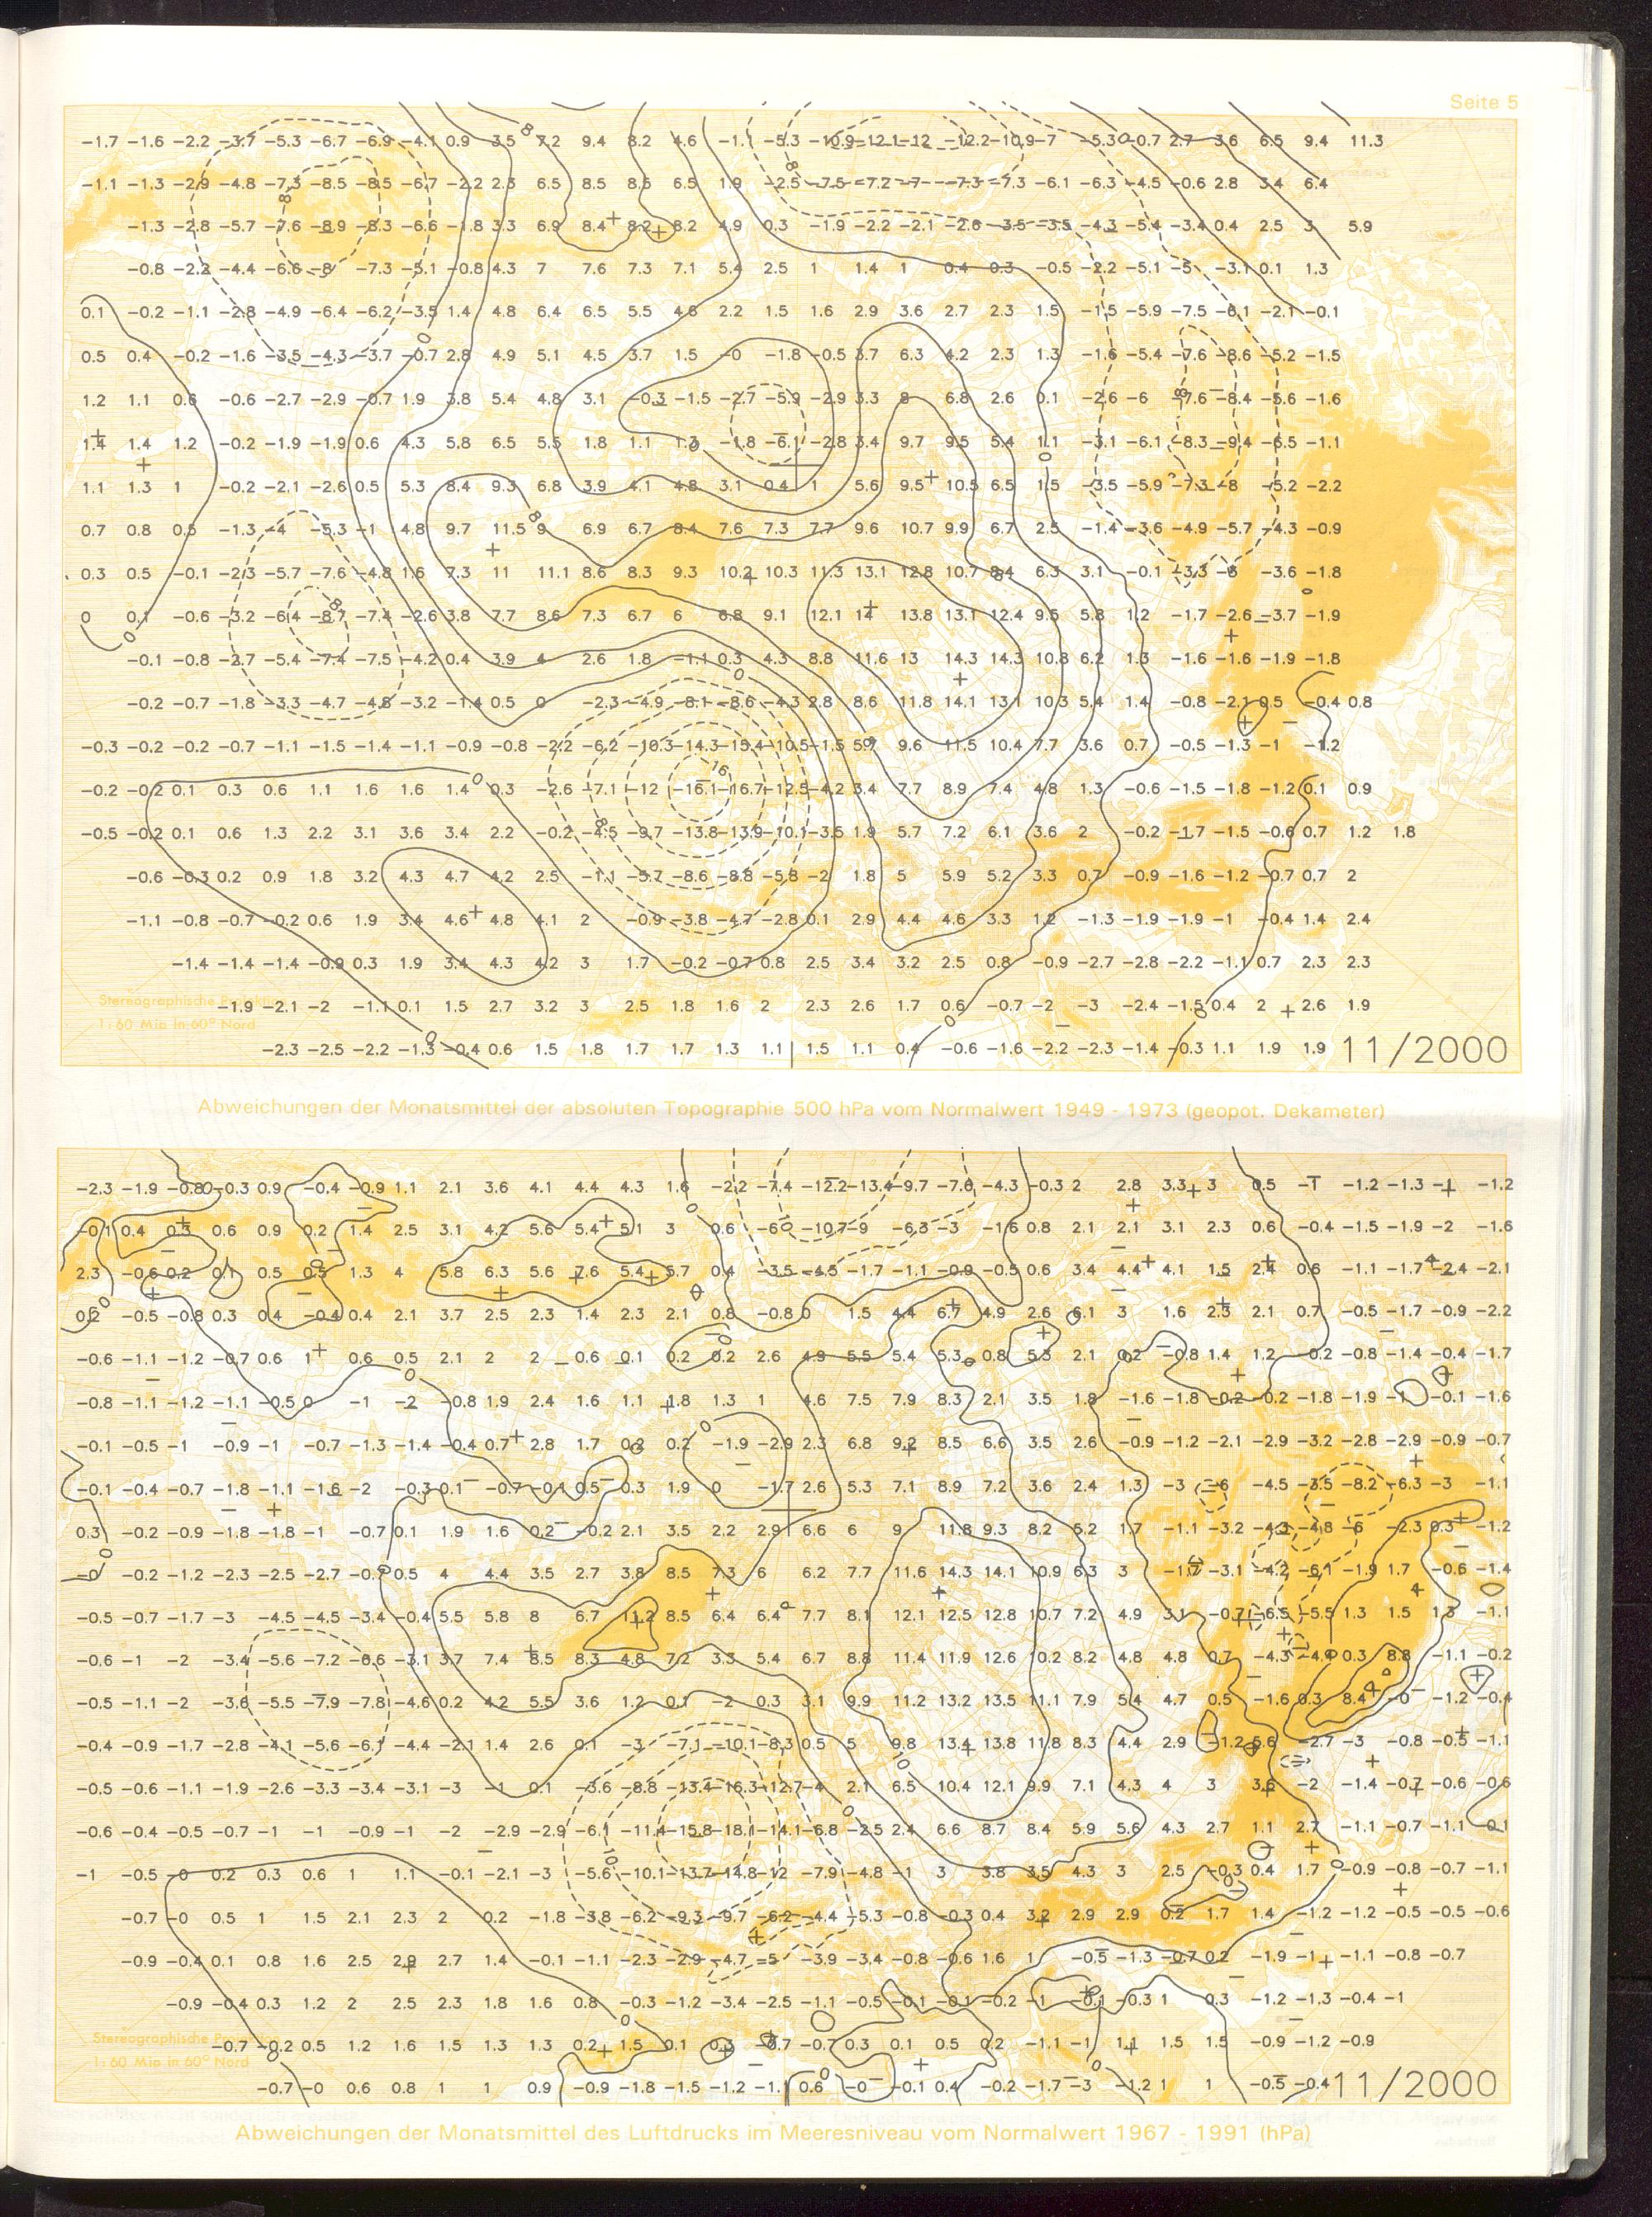 Seite 5
-1.7 -1.6 -2.2 -3.7 -5.3 -6.7 -6.9 -4.1 0.9 3.5 7.2 9.4 8.2 4.6 -1.1 -5.3 -10.9 -12.1 -12 -12.2 -10.9 -7 -5.3 -0.7 2.7 3.6 6.5 9.4 11.3
-1.1 -1.3 -2.9 -4.8 -7.3 -8.5 -8.5 -6.7 -2.2 2.3 6.5 8.5 8.6 6.5 1.9 -2.5 -7.5 -7.2 -7 -7.3 -7.3 -6.1 -6.3 -4.5 -0.6 2.8 3.4 6.4
-1.3 -2.8 -5.7 -7.6 -8.9 -8.3 -6.6 -1.8 3.3 6.9 8.4 8.2 8.2 4.9 0.3 -1.9 -2.2 -2.1 -2.6 -3.5 -3.5 -4.3 -5.4 -3.4 0.4 2.5 3 5.9
-0.8 -2.2 -4.4 -6.6 -8 -7.3 -5.1 -0.8 4.3 7 7.6 7.3 7.1 5.4 2.5 1 1.4 1 0.4 0.3 -0.5 -2.2 -5.1 -5 -3.1 0.1 1.3
0.1 -0.2 -1.1 -2.8 -4.9 -6.4 -6.2 -3.5 1.4 4.8 6.4 6.5 5.5 4.6 2.2 1.5 1.6 2.9 3.6 2.7 2.3 1.5 -1.5 -5.9 -7.5 -6.1 -2.1 -0.1
0.5 0.4 -0.2 -1.6 -3.5 -4.3 -3.7 -0.7 2.8 4.9 5.1 4.5 3.7 1.5 -0 -1.8 -0.5 3.7 6.3 4.2 2.3 1.3 -1.6 -5.4 -7.6 -8.6 -5.2 -1.5
1.2 1.1 0.6 -0.6 -2.7 -2.9 -0.7 1.9 3.8 5.4 4.8 3.1 -0.3 -1.5 -2.7 -5.9 -2.9 3.3 8 6.8 2.6 0.1 -2.6 -6 -7.6 -8.4 -5.6 -1.6
1.4 1.4 1.2 -0.2 -1.9 -1.9 0.6 4.3 5.8 6.5 5.5 1.8 1.1 1.3 -1.8 -6.1 -2.8 3.4 9.7 9.5 5.4 1.1 -3.1 -6.1 -8.3 -9.4 -6.5 -1.1
1.1 1.3 1 -0.2 -2.1 -2.6 0.5 5.3 8.4 9.3 6.8 3.9 4.1 4.8 3.1 0.4 1 5.6 9.5 10.5 6.5 1.5 -3.5 -5.9 -7.3 -8 -5.2 -2.2
0.7 0.8 0.5 -1.3 -4 -5.3 -1 4.8 9.7 11.5 9 6.9 6.7 8.4 7.6 7.3 7.7 9.6 10.7 9.9 6.7 2.5 -1.4 -3.6 -4.9 -5.7 -4.3 -0.9
0.3 0.5 -0.1 -2.3 -5.7 -7.6 -4.8 1.6 7.3 11 11.1 8.6 8.3 9.3 10.2 10.3 11.3 13.1 12.8 10.7 8.4 6.3 3.1 -0.1 -3.3 -6 -3.6 -1.8
0 0.1 -0.6 -3.2 -6.4 -8.7 -7.4 -2.6 3.8 7.7 8.6 7.3 6.7 6 6.8 9.1 12.1 14 13.8 13.1 12.4 9.5 5.8 1.2 -1.7 -2.6 -3.7 -1.9
-0.1 -0.8 -2.7 -5.4 -7.4 -7.5 -4.2 0.4 3.9 4 2.6 1.8 -1.1 0.3 4.3 8.8 11.6 13 14.3 14.3 10.8 6.2 1.3 -1.6 -1.6 -1.9 -1.8
-0.2 -0.7 -1.8 -3.3 -4.7 -4.8 -3.2 -1.4 0.5 0 -2.3 -4.9 -8.1 -8.6 -4.3 2.8 8.6 11.8 14.1 13.1 10.3 5.4 1.4 -0.8 -2.1 0.5 -0.4 0.8
-0.3 -0.2 -0.2 -0.7 -1.1 -1.5 -1.4 -1.1 -0.9 -0.8 -2.2 -6.2 -10.3 -14.3 -15.4 -10.5 -1.5 5.9 9.6 11.5 10.4 7.7 3.6 0.7 -0.5 -1.3 -1 -1.2
-0.2 -0.2 0.1 0.3 0.6 1.1 1.6 1.6 1.4 0.3 -2.6 -7.1 -12 -16.1 -16.7 -12.5 -4.2 3.4 7.7 8.9 7.4 4.8 1.3 -0.6 -1.5 -1.8 -1.2 0.1 0.9
-0.5 -0.2 0.1 0.6 1.3 2.2 3.1 3.6 3.4 2.2 -0.2 -4.5 -9.7 -13.8 -13.9 -10.1 -3.5 1.9 5.7 7.2 6.1 3.6 2 -0.2 -1.7 -1.5 -0.6 0.7 1.2 1.8
-0.6 -0.3 0.2 0.9 1.8 3.2 4.3 4.7 4.2 2.5 -1.1 -5.7 -8.6 -8.8 -5.8 -2 1.8 5 5.9 5.2 3.3 0.7 -0.9 -1.6 -1.2 -0.7 0.7 2
-1.1 -0.8 -0.7 -0.2 0.6 1.9 3.4 4.6 4.8 4.1 2 -0.9 -3.8 -4.7 -2.8 0.1 2.9 4.4 4.6 3.3 1.2 -1.3 -1.9 -1.9 -1 -0.4 1.4 2.4
-1.4 -1.4 -1.4 -0.9 0.3 1.9 3.4 4.3 4.2 3 1.7 -0.2 -0.7 0.8 2.5 3.4 3.2 2.5 0.8 -0.9 -2.7 -2.8 -2.2 -1.1 0.7 2.3 2.3
Stereographische
-1.9 -2.1 -2 -1.1 0.1 1.5 2.7 3.2 3 2.5 1.8 1.6 2 2.3 2.6 1.7 0.6 -0.7 -2 -3 -2.4 -1.5 0.4 2 2.6 1.9
1:60 Mio in 60° Nord
-2.3 -2.5 -2.2 -1.3 -0.4 0.6 1.5 1.8 1.7 1.7 1.3 1.1 1.5 1.1 0.4 -0.6 -1.6 -2.2 -2.3 -1.4 -0.3 1.1 1.9 1.9 11/2000
Abweichungen der Monatsmittel der absoluten Topographie 500 hPa vom Normalwert 1949 - 1973 (geopot. Dekameter)
-2.3 -1.9 -0.8 -0.3 0.9 -0.4 -0.9 1.1 2.1 3.6 4.1 4.4 4.3 1.6 -2.2 -7.4 -12.2 -13.4 -9.7 -7.6 -4.3 -0.3 2 2.8 3.3 3 0.5 -1 -1.2 -1.3 -1 -1.2
-0.1 0.4 0.3 0.6 0.9 0.2 1.4 2.5 3.1 4.2 5.6 5.4 5.1 3 0.6 -6 -10.7 -9 -6.3 -3 -1.6 0.8 2.1 2.1 3.1 2.3 0.6 -0.4 -1.5 -1.9 -2 -1.6
2.3 -0.6 0.2 0.1 0.5 0.5 1.3 4 5.8 6.3 5.6 7.6 5.4 5.7 0.4 -3.5 -4.5 -1.7 -1.1 -0.9 -0.5 0.6 3.4 4.4 4.1 1.5 2.4 0.6 -1.1 -1.7 -2.4 -2.1
0.2 -0.5 -0.8 0.3 0.4 -0.4 0.4 2.1 3.7 2.5 2.3 1.4 2.3 2.1 0.8 -0.8 0 1.5 4.4 6.7 4.9 2.6 6.1 3 1.6 2.3 2.1 0.7 -0.5 -1.7 -0.9 -2.2
-0.6 -1.1 -1.2 -0.7 0.6 1 0.6 0.5 2.1 2 2 0.6 0.1 0.2 0.2 2.6 4.9 5.5 5.4 5.3 0.8 5.3 2.1 0.2 -0.8 1.4 1.2 -0.2 -0.8 -1.4 -0.4 -1.7
-0.8 -1.1 -1.2 -1.1 -0.5 0 -1 -2 -0.8 1.9 2.4 1.6 1.1 1.8 1.3 1 4.6 7.5 7.9 8.3 2.1 3.5 1.8 -1.6 -1.8 -0.2 -0.2 -1.8 -1.9 -1 -0.1 -1.6
-0.1 -0.5 -1 -0.9 -1 -0.7 -1.3 -1.4 -0.4 0.7 2.8 1.7 0.2 0.2 -1.9 -2.9 2.3 6.8 9.2 8.5 6.6 3.5 2.6 -0.9 -1.2 -2.1 -2.9 -3.2 -2.8 -2.9 -0.9 -0.7
-0.1 -0.4 -0.7 -1.8 -1.1 -1.6 -2 -0.3 0.1 -0.7 -0.1 0.5 0.3 1.9 0 -1.7 2.6 5.3 7.1 8.9 7.2 3.6 2.4 1.3 -3 -6 -4.5 -3.5 -8.2 -6.3 -3 -1.1
0.3 -0.2 -0.9 -1.8 -1.8 -1 -0.7 0.1 1.9 1.6 0.2 -0.2 2.1 3.5 2.2 2.9 6.6 6 9 11.8 9.3 8.2 5.2 1.7 -1.1 -3.2 -4.3 -4.8 -6 -2.3 0.3 -1.2
-0 -0.2 -1.2 -2.3 -2.5 -2.7 -0.7 0.5 4 4.4 3.5 2.7 3.8 8.5 7.3 6 6.2 7.7 11.6 14.3 14.1 10.9 6.3 3 -3.1 -4.2 -6.1 -1.9 1.7 -0.6 -1.4
-0.5 -0.7 -1.7 -3 -4.5 -4.5 -3.4 -0.4 5.5 5.8 8 6.7 11.2 8.5 6.4 6.4 7.7 8.1 12.1 12.5 12.8 10.7 7.2 4.9 3.1 -0.7 -6.5 -5.5 1.3 1.5 1.3 -1.1
-0.6 -1 -2 -3.4 -5.6 -7.2 -6.6 -3.1 3.7 7.4 8.5 8.3 4.8 7.2 3.3 5.4 6.7 8.8 11.4 11.9 12.6 10.2 8.2 4.8 4.8 0.7 -4.3 0.3 8.8 -1.1 -0.2
-0.5 -1.1 -2 -3.6 -5.5 -7.9 -7.8 -4.6 0.2 4.2 5.5 3.6 1.2 0.1 -2 0.3 3.1 9.9 11.2 13.2 13.5 11.1 7.9 5.4 4.7 0.5 -1.6 0.3 8.4 -0 -1.2 -0.4
-0.4 -0.9 -1.7 -2.8 -4.1 -5.6 -6.1 -4.4 -2.1 1.4 2.6 0.1 -3 -7.1 -10.1 -8.3 0.5 5 9.8 13.4 13.8 11.8 8.3 4.4 2.9 -1.2 5.6 -2.7 -3 -0.8 -0.5 -1.1
-0.5 -0.6 -1.1 -1.9 -2.6 -3.3 -3.4 -3.1 -3 -1 0.1 -3.6 -8.8 -13.4 -16.3 -12.7 -4 2.1 6.5 10.4 12.1 9.9 7.1 4.3 4 3 3.6 -2 -1.4 -0.7 -0.6 -0.6
-0.6 -0.4 -0.5 -0.7 -1 -1 -0.9 -1 -2 -2.9 -2.9 -6.1 -11.4 -15.8 -18.1 -14.1 -6.8 -2.5 2.4 6.6 8.7 8.4 5.9 5.6 4.3 2.7 1.1 2.7 -1.1 -0.7 -1.1 0.1
-1 -0.5 -0 0.2 0.3 0.6 1 1.1 -0.1 -2.1 -3 -5.6 -10.1 -13.7 -14.8 -12 -7.9 -4.8 -1 3 3.8 3.5 4.3 3 2.5 -0.3 0.4 1.7 -0.9 -0.8 -0.7 -1.1
-0.7 -0 0.5 1 1.5 2.1 2.3 2 0.2 -1.8 -3.8 -6.2 -9.3 -9.7 -6.2 -4.4 -5.3 -0.8 -0.3 0.4 3.2 2.9 2.9 0.2 1.7 1.4 -1.2 -1.2 -0.5 -0.5 -0.6
-0.9 -0.4 0.1 0.8 1.6 2.5 2.9 2.7 1.4 -0.1 -1.1 -2.3 -2.9 -4.7 -5 -3.9 -3.4 -0.8 -0.6 1.6 1 -0.5 -1.3 -0.7 0.2 -1.9 -1 -1.1 -0.8 -0.7
-0.9 -0.4 0.3 1.2 2 2.5 2.3 1.8 1.6 0.8 -0.3 -1.2 -3.4 -2.5 -1.1 -0.5 -0.1 -0.1 -0.2 -1 -0.1 -0.3 1 0.3 -1.2 -1.3 -0.4 -1
Stereographische
-0.7 -0.2 0.5 1.2 1.6 1.5 1.3 1.3 0.2 1.5 0.1 0.3 -0.7 -0.7 0.3 0.1 0.5 0.2 -1.1 -1 1.1 1.5 1.5 -0.9 -1.2 -0.9
1:60 Mio in 60° Nord
-0.7 -0 0.6 0.8 1 1 0.9 -0.9 -1.8 -1.5 -1.2 -1.1 0.6 -0 -0.1 0.4 -0.2 -1.7 -3 -1.2 1 1 -0.5 -0.4 11/2000
Abweichungen der Monatsmittel des Luftdrucks im Meeresniveau vom Normalwert 1967 - 1991 (hPa)